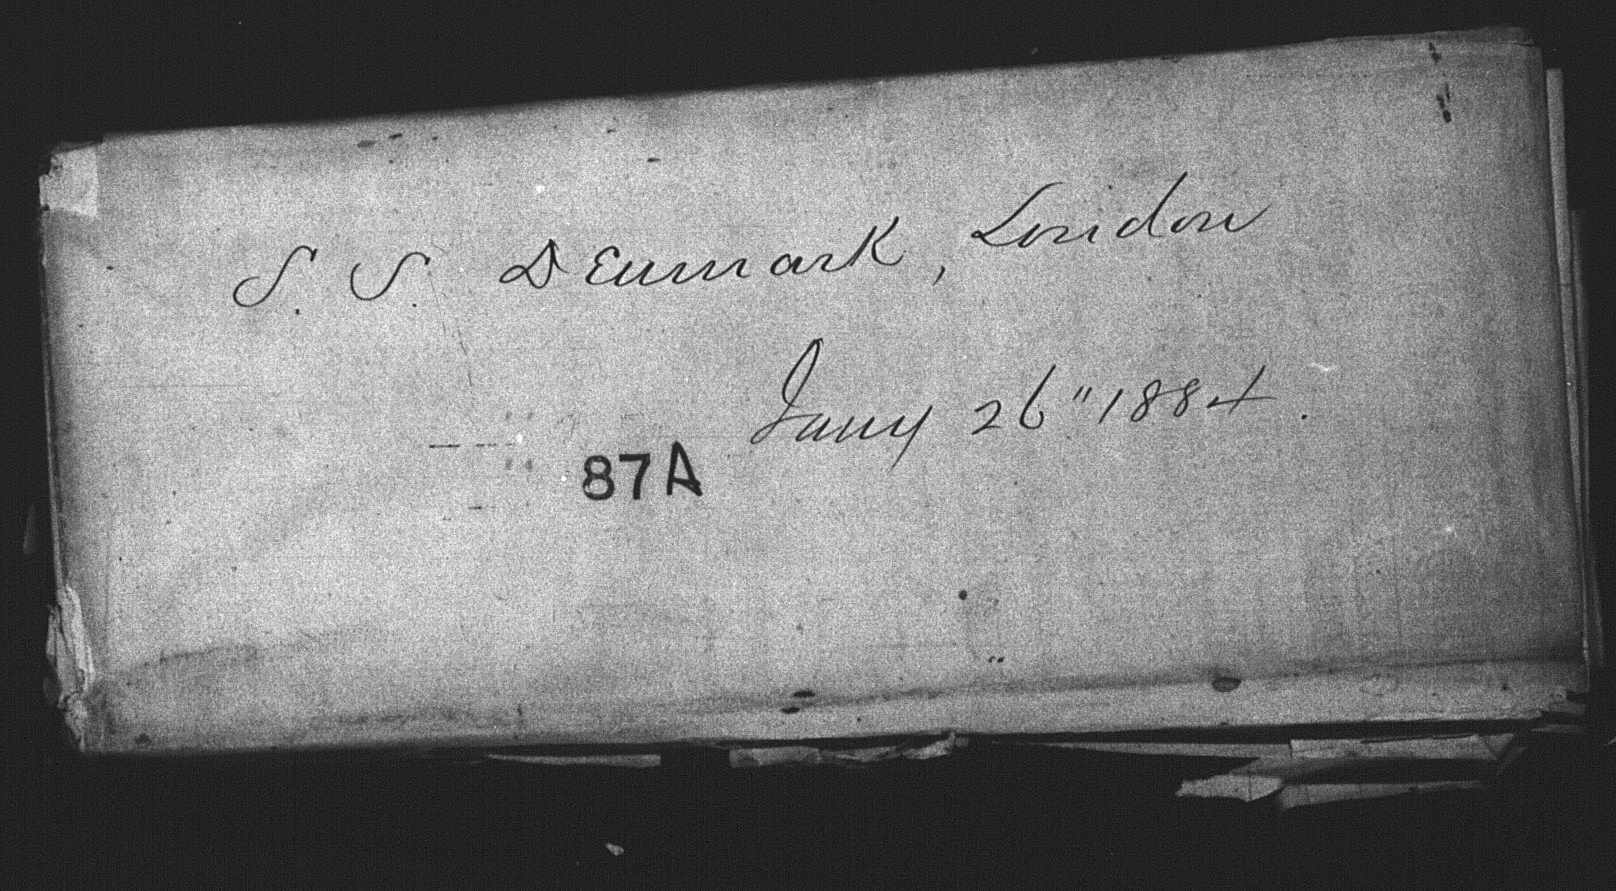 S. S. Denmark, London
Jany 26" 1884.
87A